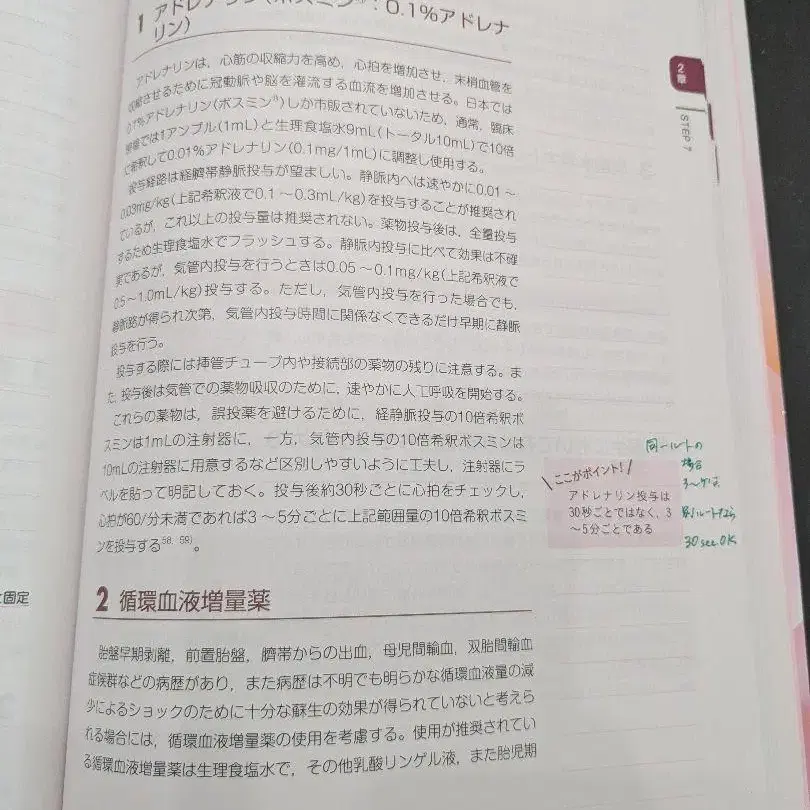 1 アドレナリン(ボスミン®：0.1%アドレナ
リン)
アドレナリンは，心筋の収縮力を高め，心拍を増加させ，末梢血管を
収縮させるために冠動脈や脳を灌流する血流を増加させる。日本では
0.1%アドレナリン(ボスミン®)しか市販されていないため，通常，臨床
現場では1アンプル(1mL)と生理食塩水9mL(トータル10mL)で10倍
に希釈して0.01%アドレナリン(0.1mg/1mL)に調整し使用する。
投与経路は経臍帯静脈投与が望ましい。静脈内へは速やかに0.01～
0.03mg/kg(上記希釈液で0.1～0.3mL/kg)を投与することが推奨され
ているが，これ以上の投与量は推奨されない。薬物投与後は，全量投与
するため生理食塩水でフラッシュする。静脈内投与に比べて効果は不確
実であるが，気管内投与を行うときは0.05～0.1mg/kg(上記希釈液で
0.5～1.0mL/kg)投与する。ただし，気管内投与を行った場合でも，
静脈路が得られ次第，気管内投与時間に関係なくできるだけ早期に静脈
投与を行う。
投与する際には挿管チューブ内や接続部の薬物の残りに注意する。ま
た，投与後は気管での薬物吸収のために，速やかに人工呼吸を開始する。
これらの薬物は，誤投薬を避けるために，経静脈投与の10倍希釈ボ
スミンは1mLの注射器に，一方，気管内投与の10倍希釈ボスミンは
10mLの注射器に用意するなど区別しやすいように工夫し，注射器にラ
ベルを貼って明記しておく。投与後約30秒ごとに心拍をチェックし，
心拍が60/分未満であれば3～5分ごとに上記範囲量の10倍希釈ボスミ
ンを投与する58, 59)。
2 循環血液増量薬
胎盤早期剥離，前置胎盤，臍帯からの出血，母児間輸血，双胎間輸血
症候群などの病歴があり，また病歴は不明でも明らかな循環血液量の減
少によるショックのために十分な蘇生の効果が得られていないと考えら
れる場合には，循環血液増量薬の使用を考慮する。使用が推奨されてい
る循環血液増量薬は生理食塩水で，その他乳酸リンゲル液，また胎児期
ここがポイント！
アドレナリン投与は
30秒ごとではなく，3
～5分ごとである
同一ルートの
場合
3～5分
別ルートなら
30sec.OK
2章
STEP 7
固定